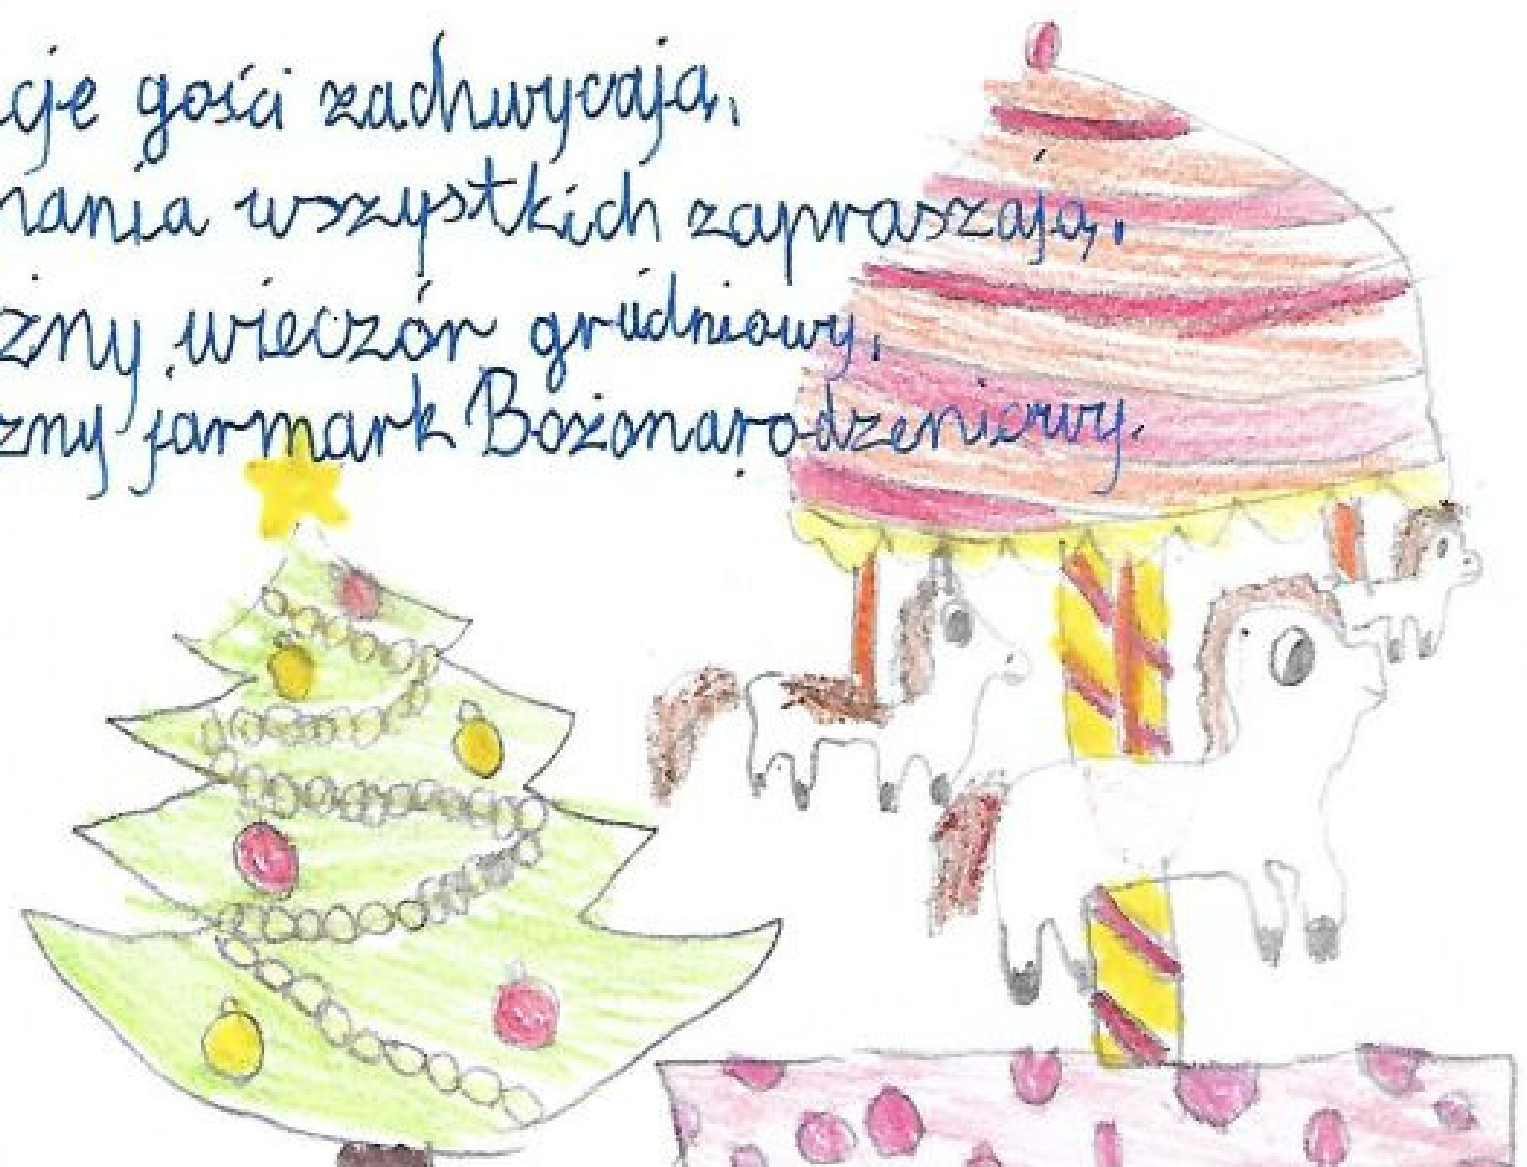 cje gości zachwycają,
nania wszystkich zapraszają,
zny wieczór grudniowy,
zny jarmark Bożonarodzeniowy.